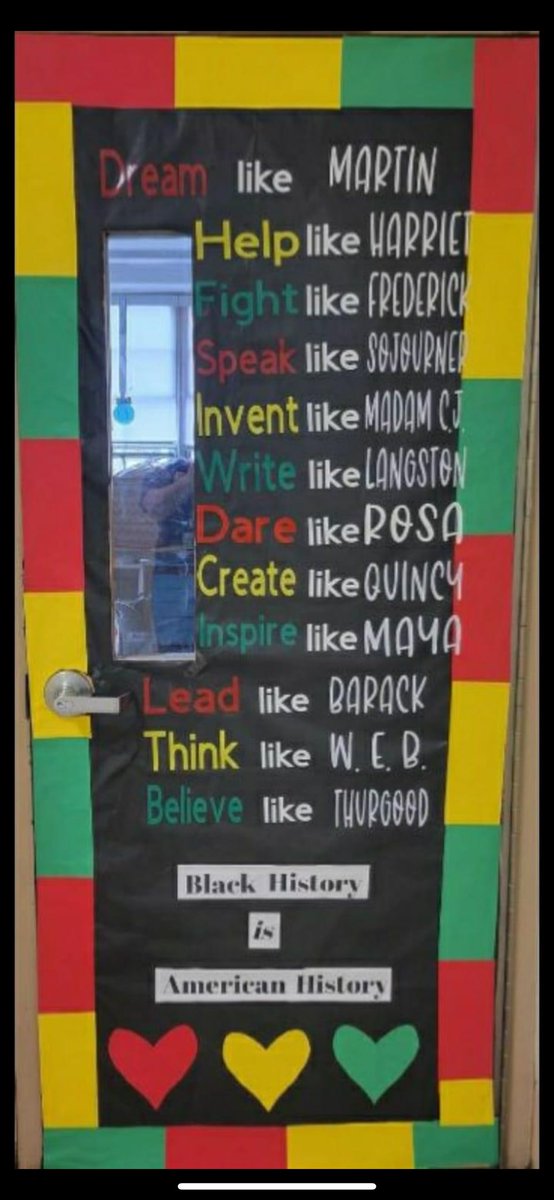 Dream like MARTIN
Help like HARRIET
Fight like FREDERICK
Speak like SOJOURNER
Invent like MADAM C.J.
Write like LANGSTON
Dare like ROSA
Create like QUINCY
Inspire like MAYA
Lead like BARACK
Think like W. E. B.
Believe like THURGOOD
Black History
is
American History